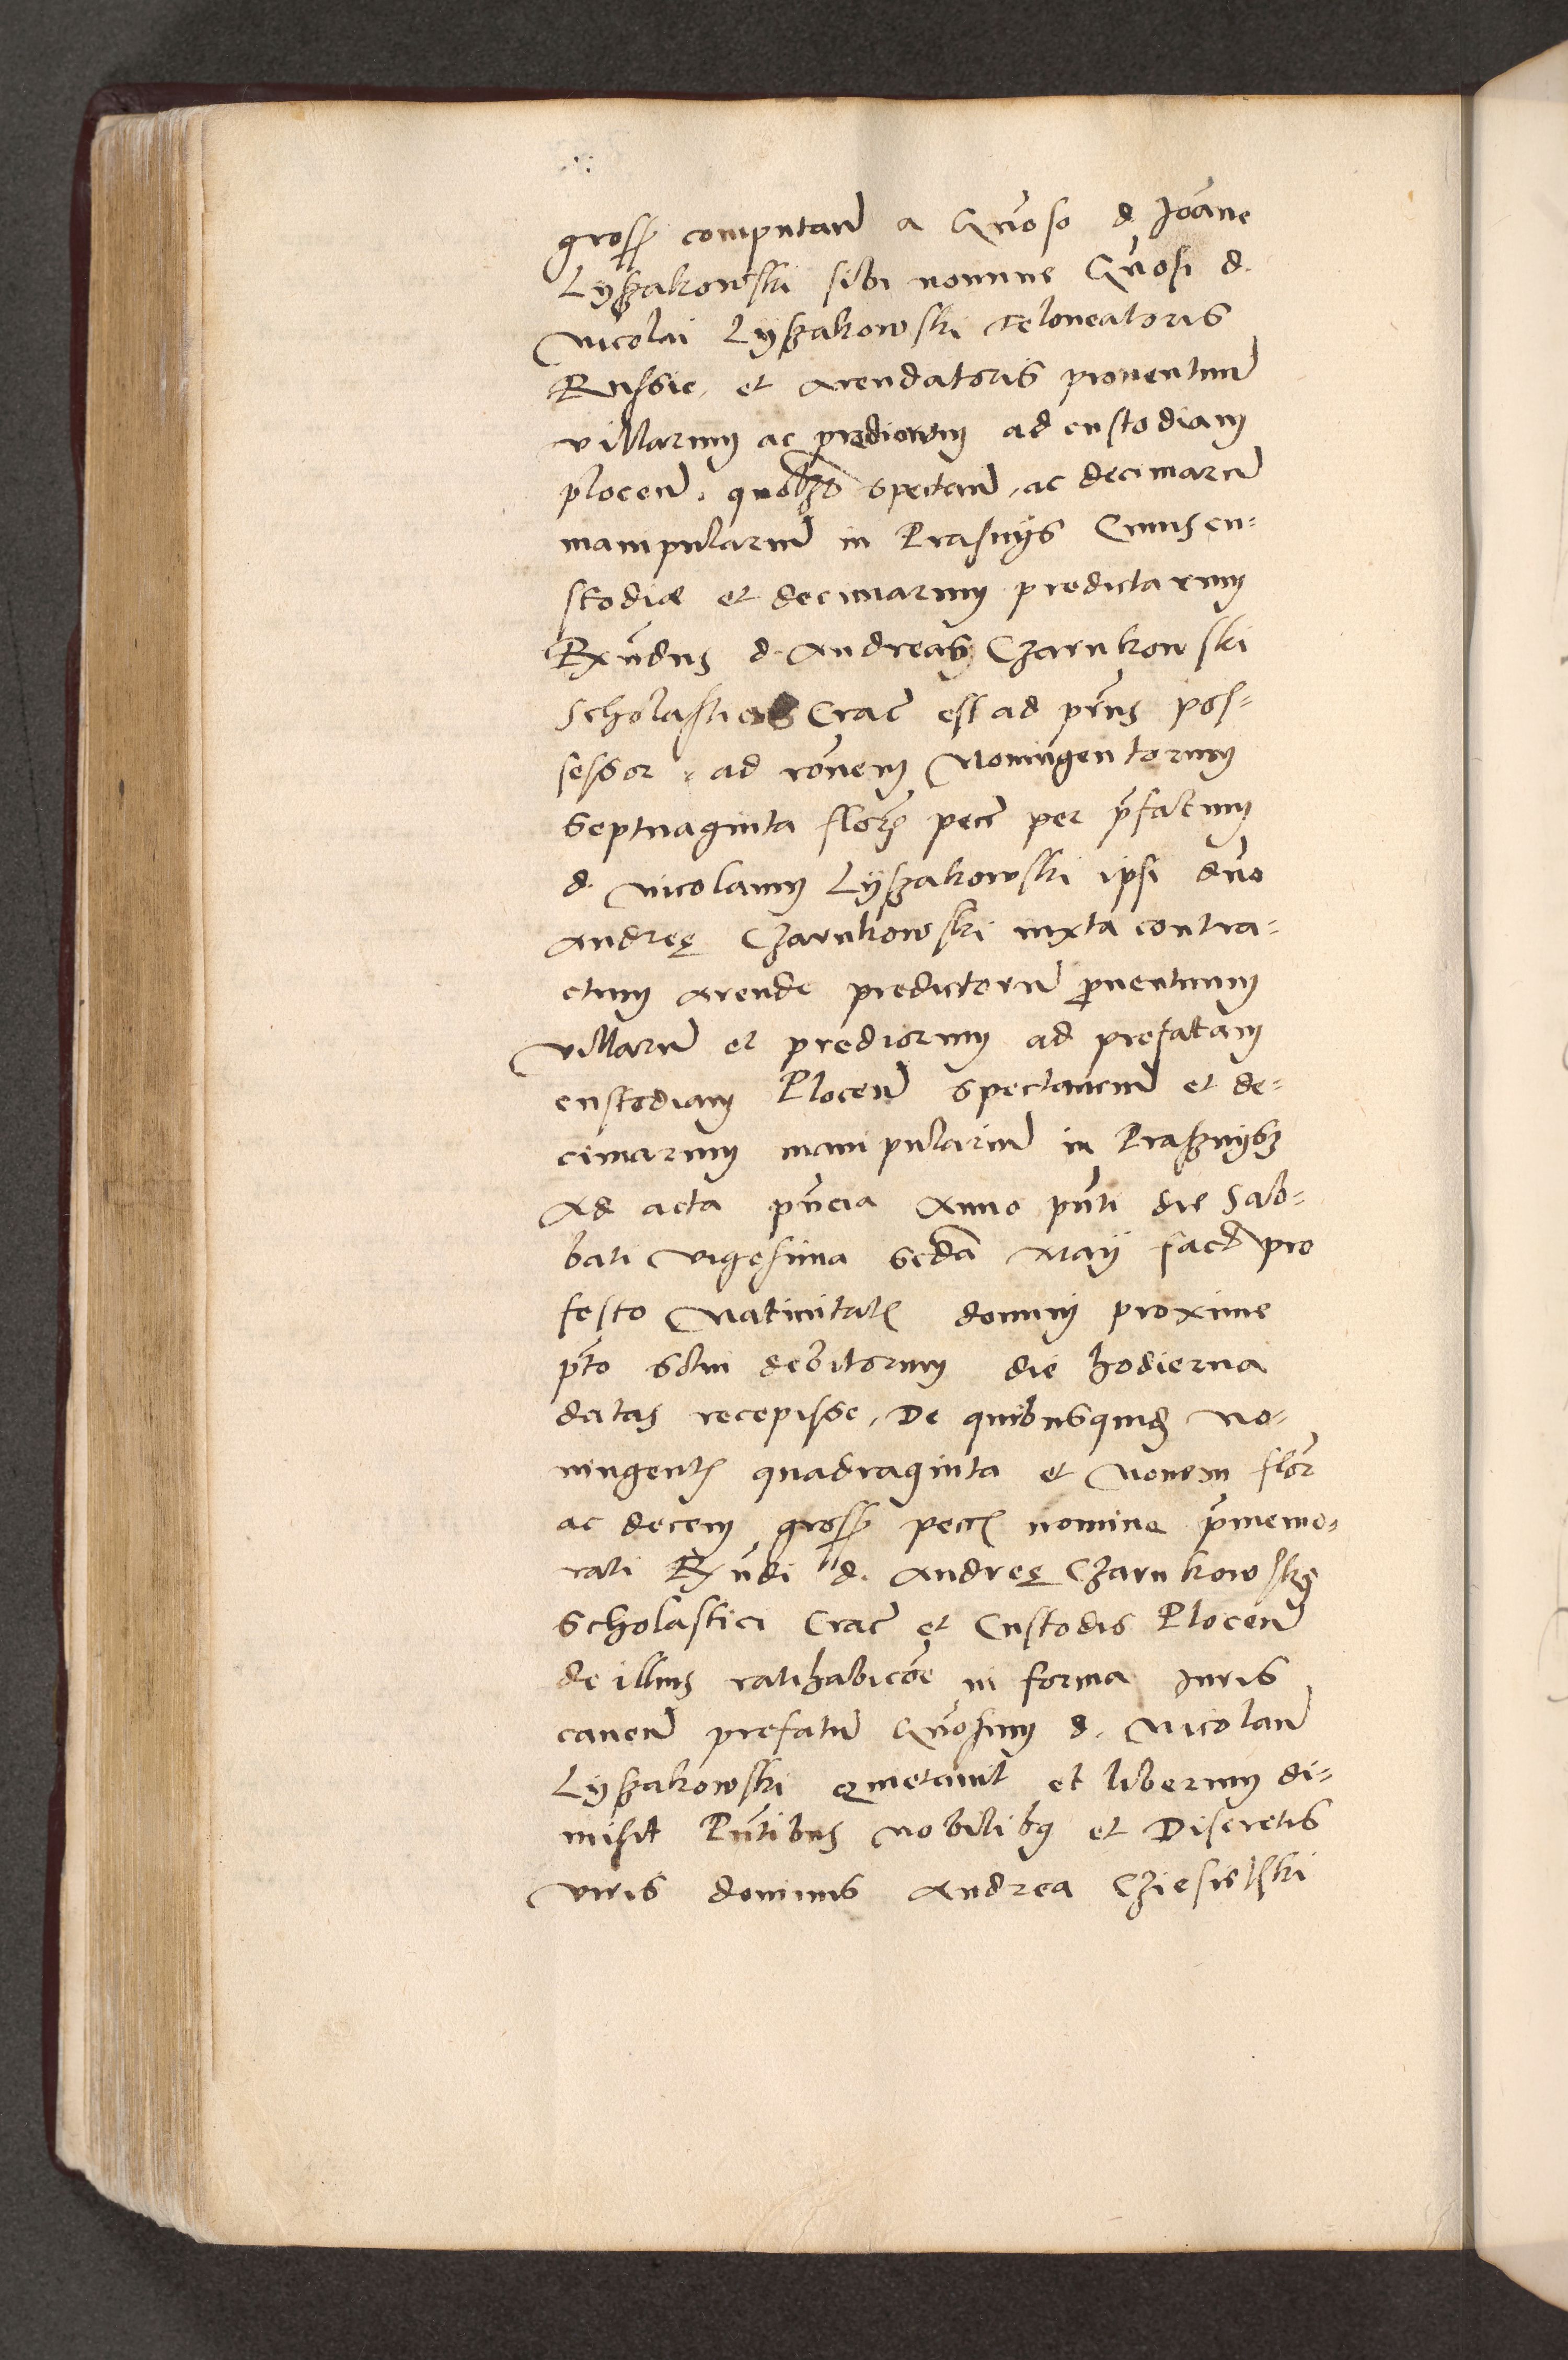 gross computan a Gnoso d. Joanne
Lyssakowski sibi nomine Gnosi d.
Nicolai Lyssakowski teloneatoris
Russie, et arendatoris proventuum
villarum ac prediorum ad custodiam
plocen. spectan, ac decimarum
manipularium in Prasnijs Cuius cu=
stodiæ et decimarum predictarum
Rxndus d. Andreas Czarnkowski
Scholasticus Crac est ad prns pos=
sessor. ad ronem Noningentorum
septuaginta flor pecc per pfatum
d. Nicolaum Lyssakowski ipsi dno
Andreę Czarnkowski iuxta contra=
ctum Arende predictorum proventuum
villarum et prediorum ad prefatam
custodiam Plocen spectancium et de=
cimarum manipularium in Prassnijss
Ad acta pncia Anno pnti die Sab=
bati vigesima secda Maij fact pro
festo Nativitatis domini proxime
pto solvi debitorum die hodierna
datas recepisse, De quibusquidem no=
ningentis quadraginta et Novem flor
ac decem gross pecc nomine pmemo=
rati Rxndi d. Andreę Czarnkowski
Scholastici Crac et Custodis Plocen
de illius ratihabicoe in forma Iuris
caven prefatum Gnosum d. Nicolaum
Lyssakowski quietavit et liberum di=
misit Pntibus nobilibus et Discretis
viris dominis Andrea Cziesielski